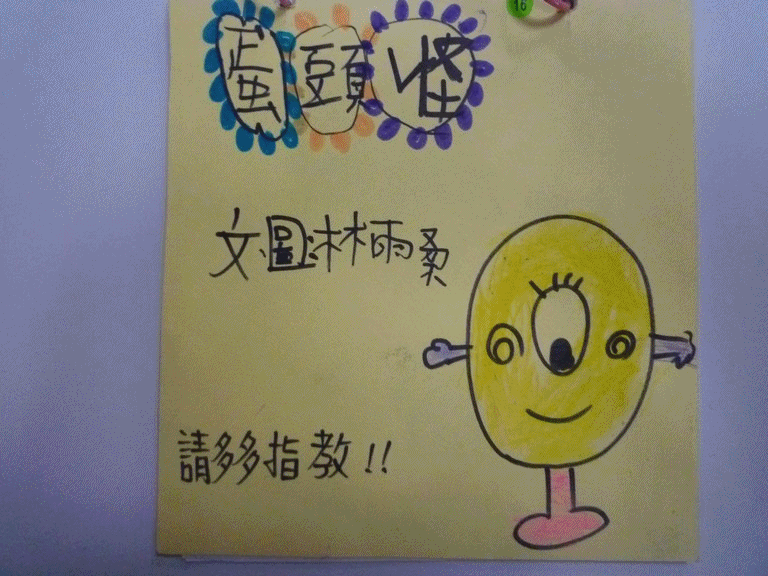 蛋頭怪
16
文.圖:林雨桑
請多多指教!!